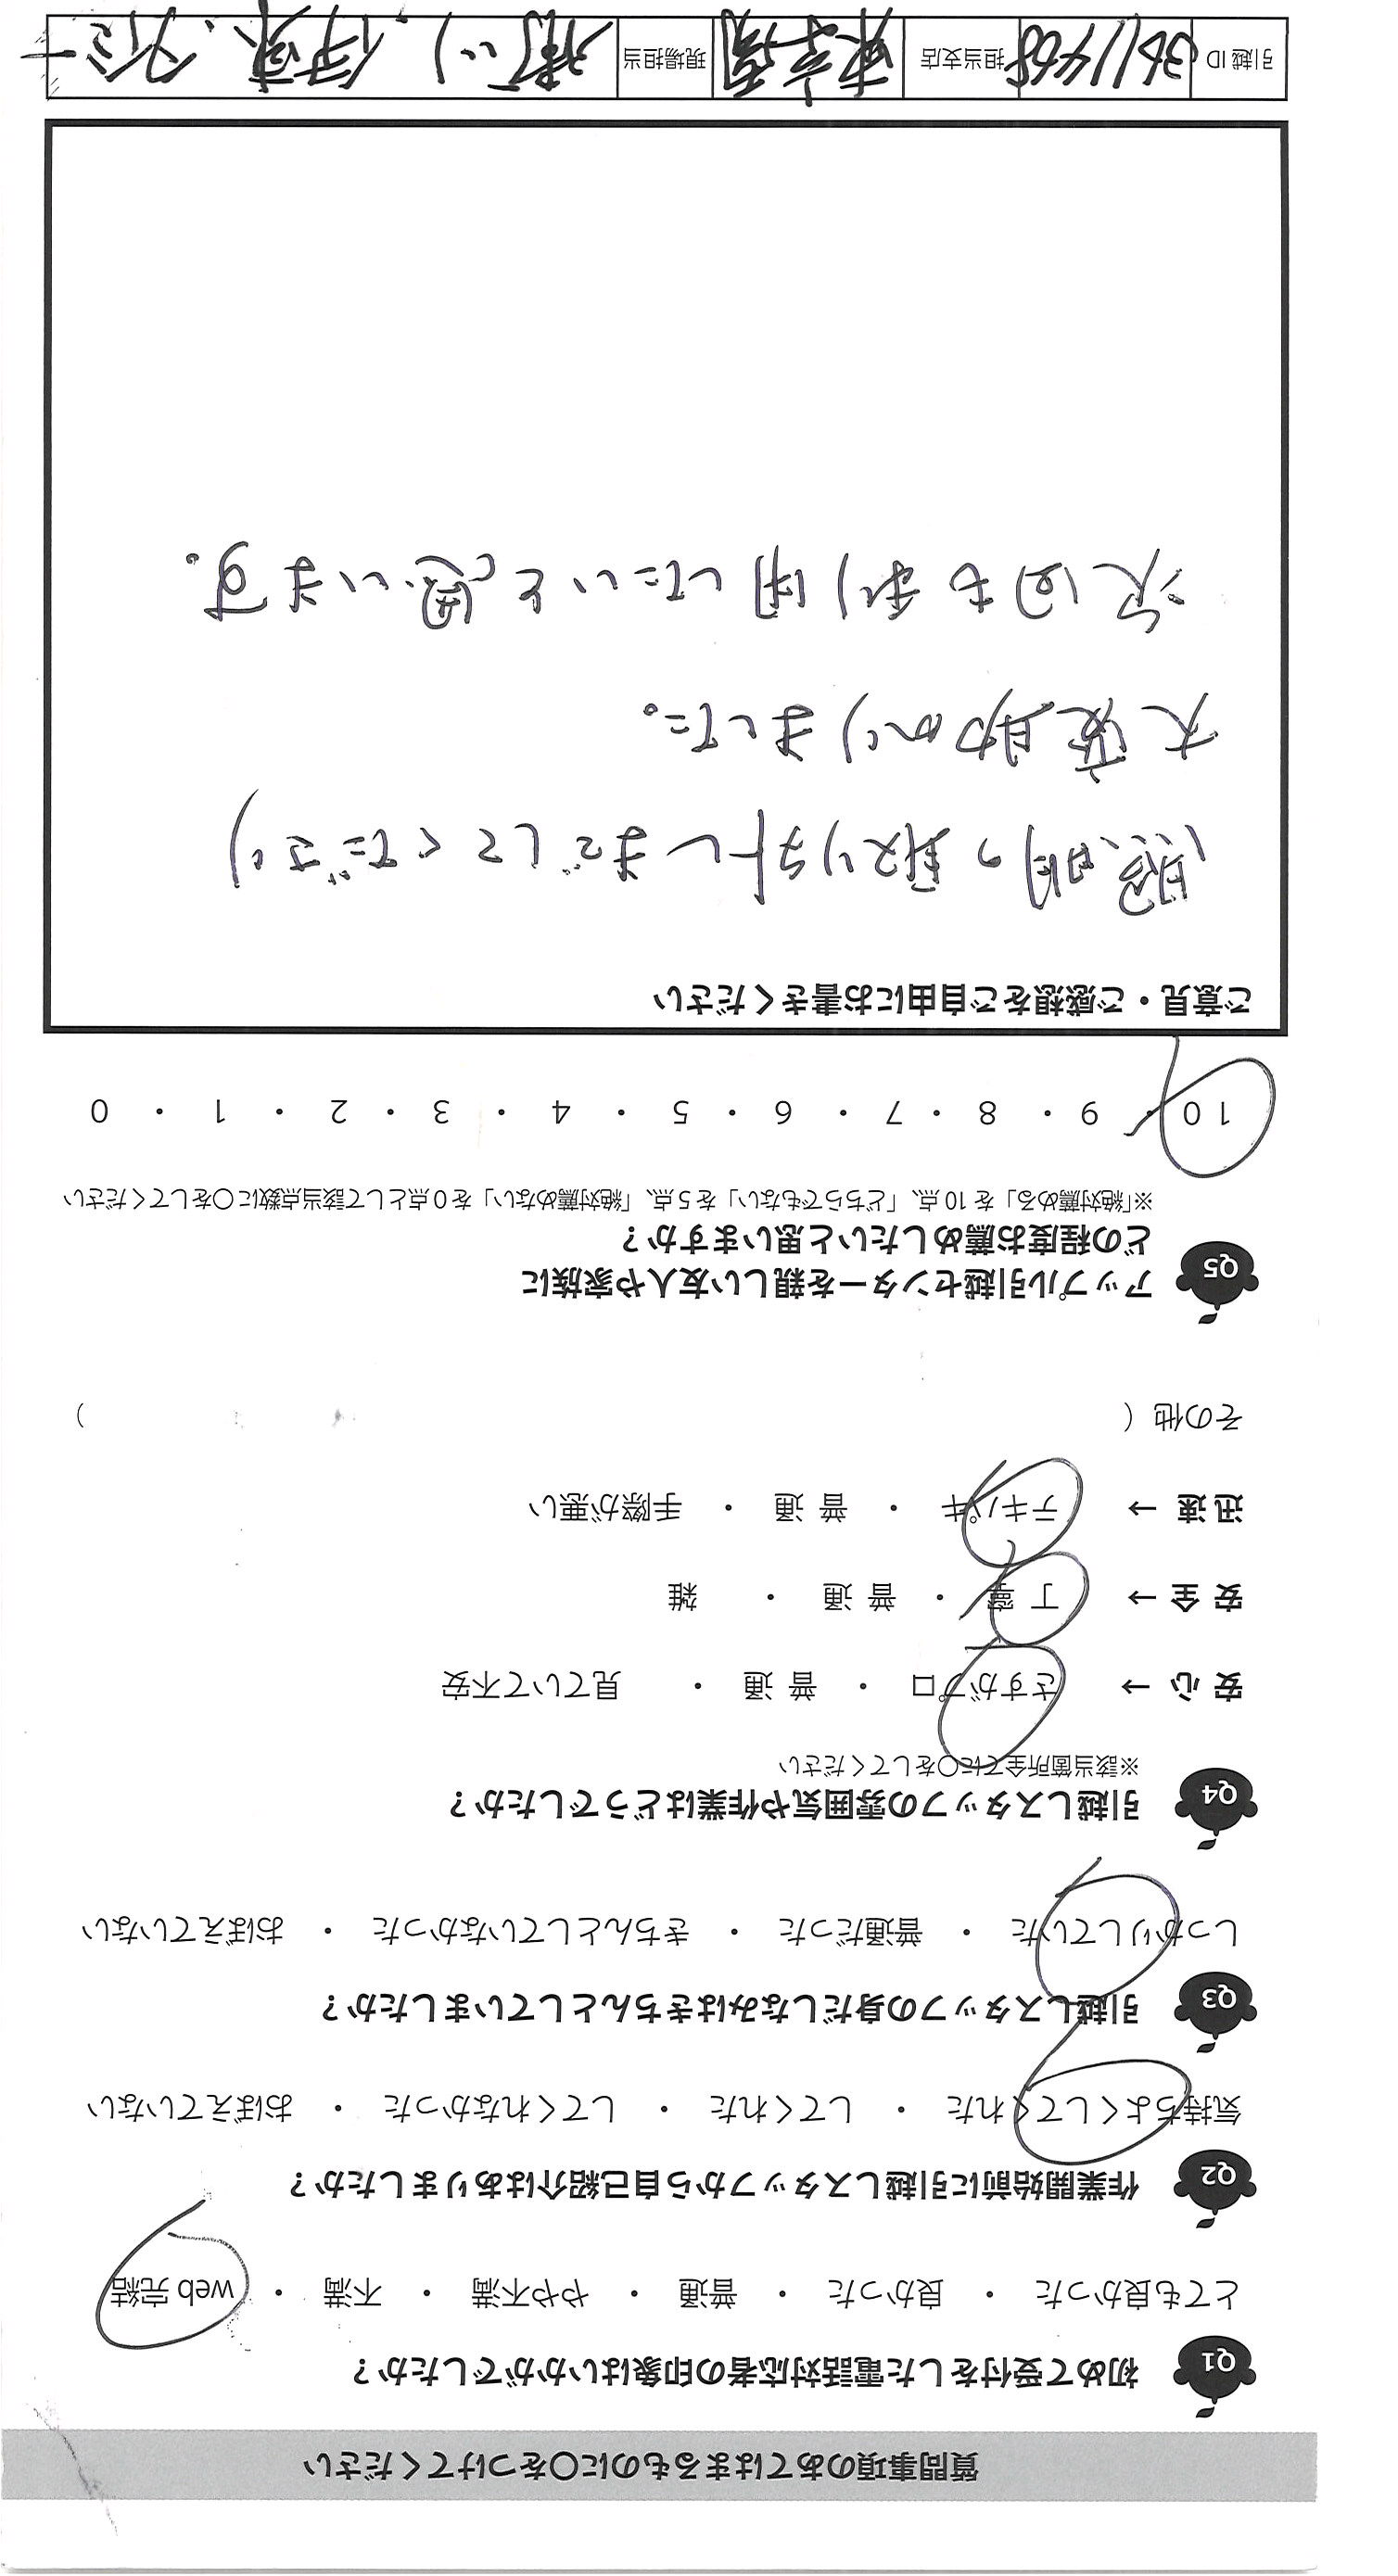 質問事項のあてはまるものに〇をつけてください
Q1 初めて受付をした電話対応者の印象はいかがでしたか？
とても良かった ・ 良かった ・ 普通 ・ やや不満 ・ 不満 ・ web 完結
Q2 作業開始前に引越しスタッフから自己紹介はありましたか？
気持ちよくしてくれた ・ してくれた ・ してくれなかった ・ おぼえていない
Q3 引越しスタッフの身だしなみはきちんとしていましたか？
しっかりしていた ・ 普通だった ・ きちんとしていなかった ・ おぼえていない
Q4 引越しスタッフの雰囲気や作業はどうでしたか？
※該当箇所全てに〇をしてください
安 心 → さすがプロ ・ 普 通 ・ 見ていて不安
安 全 → 丁 寧 ・ 普 通 ・ 雑
迅 速 → テキパキ ・ 普 通 ・ 手際が悪い
その他 （ ）
Q5 アップル引越センターを親しい友人や家族に
どの程度お薦めしたいと思いますか？
※「絶対薦める」を 10 点、「どちらでもない」を 5 点、「絶対薦めない」を 0 点として該当点数に〇をしてください
10 ・ 9 ・ 8 ・ 7 ・ 6 ・ 5 ・ 4 ・ 3 ・ 2 ・ 1 ・ 0
ご意見・ご感想をご自由にお書きください
照明の取り外しまでしてくださり
大変助かりました。
次回も利用したいと思います。
引越 ID 3611408 担当支店 現場担当